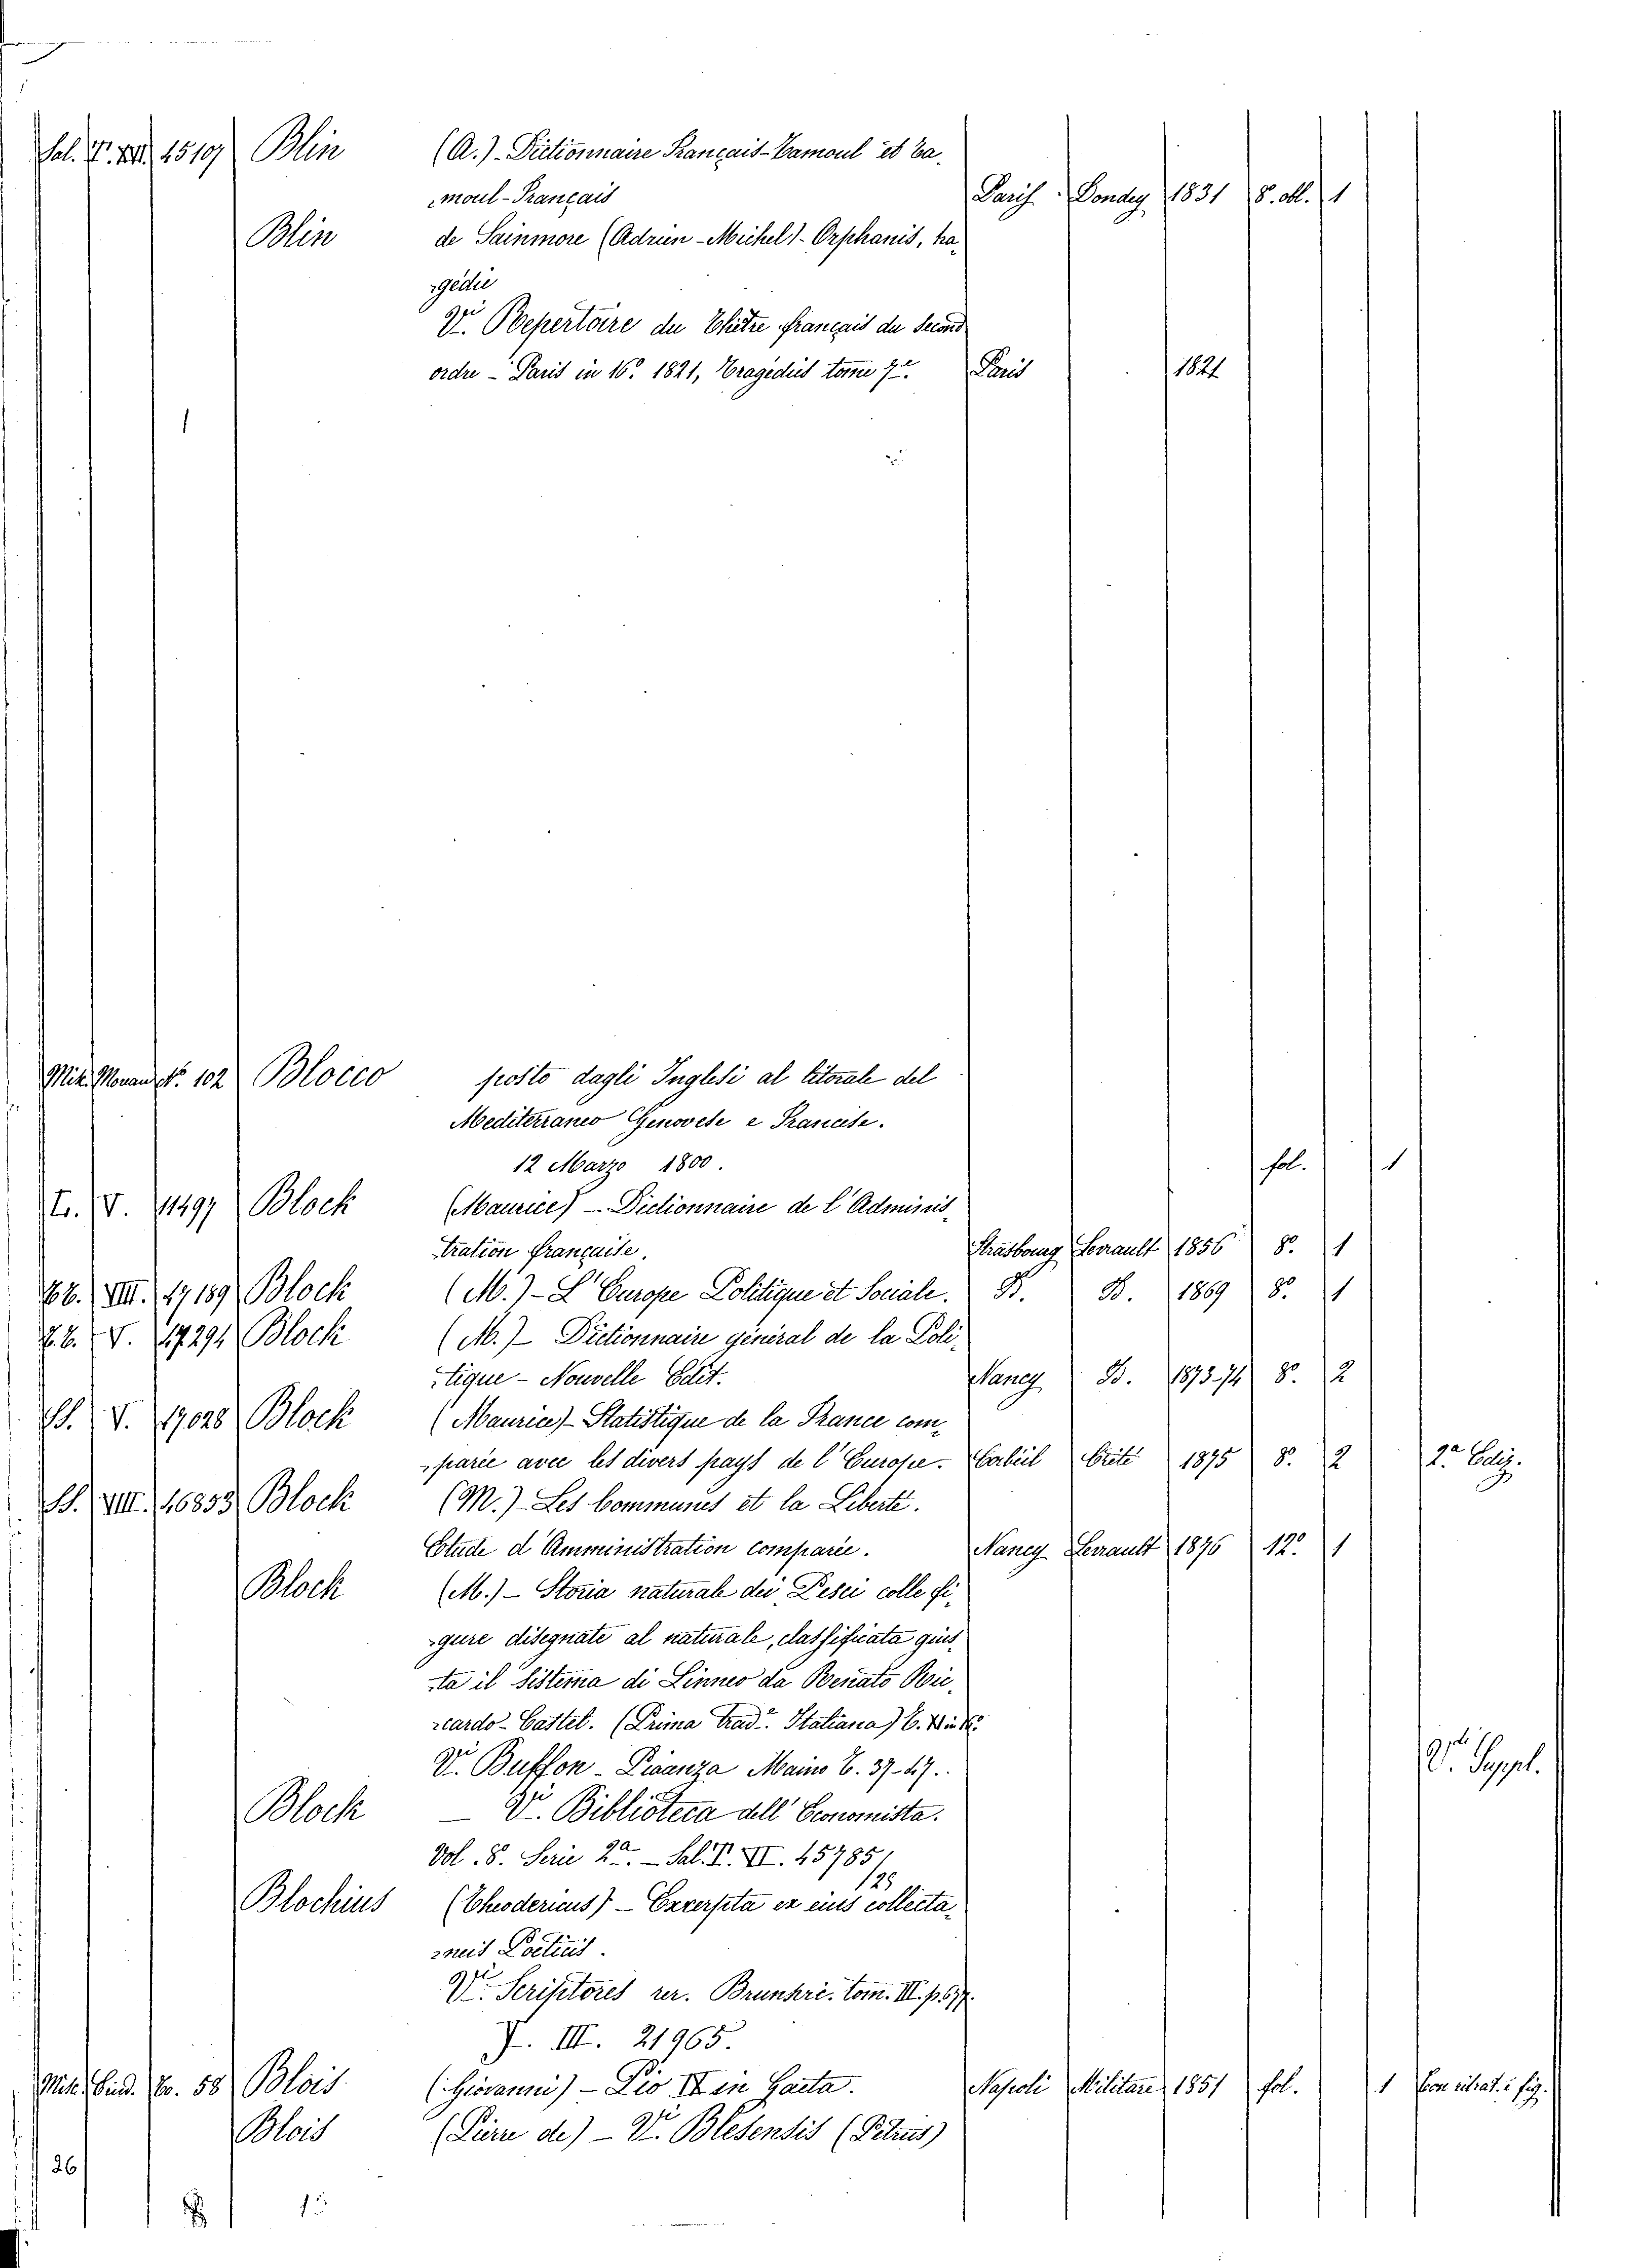 Sal. P. XII. 45107 Blin (A.) - Dictionnaire Français-Tamoul et Ta-
moul-Français Paris Dondey 1831 8.º obl. 1
Blin de Sainmore (Adrien-Michel) - Orphanis, tra-
gédie
Vi. Repertoire du Théâtre français du Second
ordre - Paris in 16º 1821, Tragédies tome 7e. Paris 1821
1
Mil. Monan Nº 102 Blocco posto dagli Inglesi al litorale del
Mediterraneo Genovese e Francese.
12 Marzo 1800. fol. 1
V. 11497 Block (Maurice) - Dictionnaire de l'Adminis-
tration française. Strasbourg Levrault 1856 8º 1
VIII. 47189 Block (M.) - L'Europe Politique et Sociale. B. B. 1869 8º 1
V. 47291 Block (M.) - Dictionnaire général de la Poli-
tique - Nouvelle Edit. Nancy B. 1873-74 8º 2
V. 47028 Block (Maurice) - Statistique de la France com-
parée avec les divers pays de l'Europe. Corbeil Crété 1875 8º 2 2ª Ediz.
VIII. 46853 Block (M.) - Les Communes et la Liberté.
Etude d'Amministration comparée. Nancy Levrault 1876 12º 1
Block (M.) - Storia naturale dei Pesci colle fi-
gure disegnate al naturale, classificata gius-
ta il Sistema di Linneo da Renato Ric-
cardo-Castel. (Prima trad.e Italiana)
Vi. Buffon - Piacenza Maino T. 37-47. Vi. Suppl.
Block - Vi. Biblioteca dell'Economista.
Vol. 8. Serie 2ª. - Sal. P. VI. 45785/128
Blochius (Theodericus) - Excerpta ex eius collecta-
neis Poeticis.
Vi. Scriptores rer. Brunsvic. tom. III. p. 677.
J. III. 21965.
58 Blois (Giovanni) - Pio IX in Gaeta. Napoli Militare 1851 fol. 1 Con ritrat. e fig.
Blois (Pierre de) - Vi. Blesensis (Petrus)
26